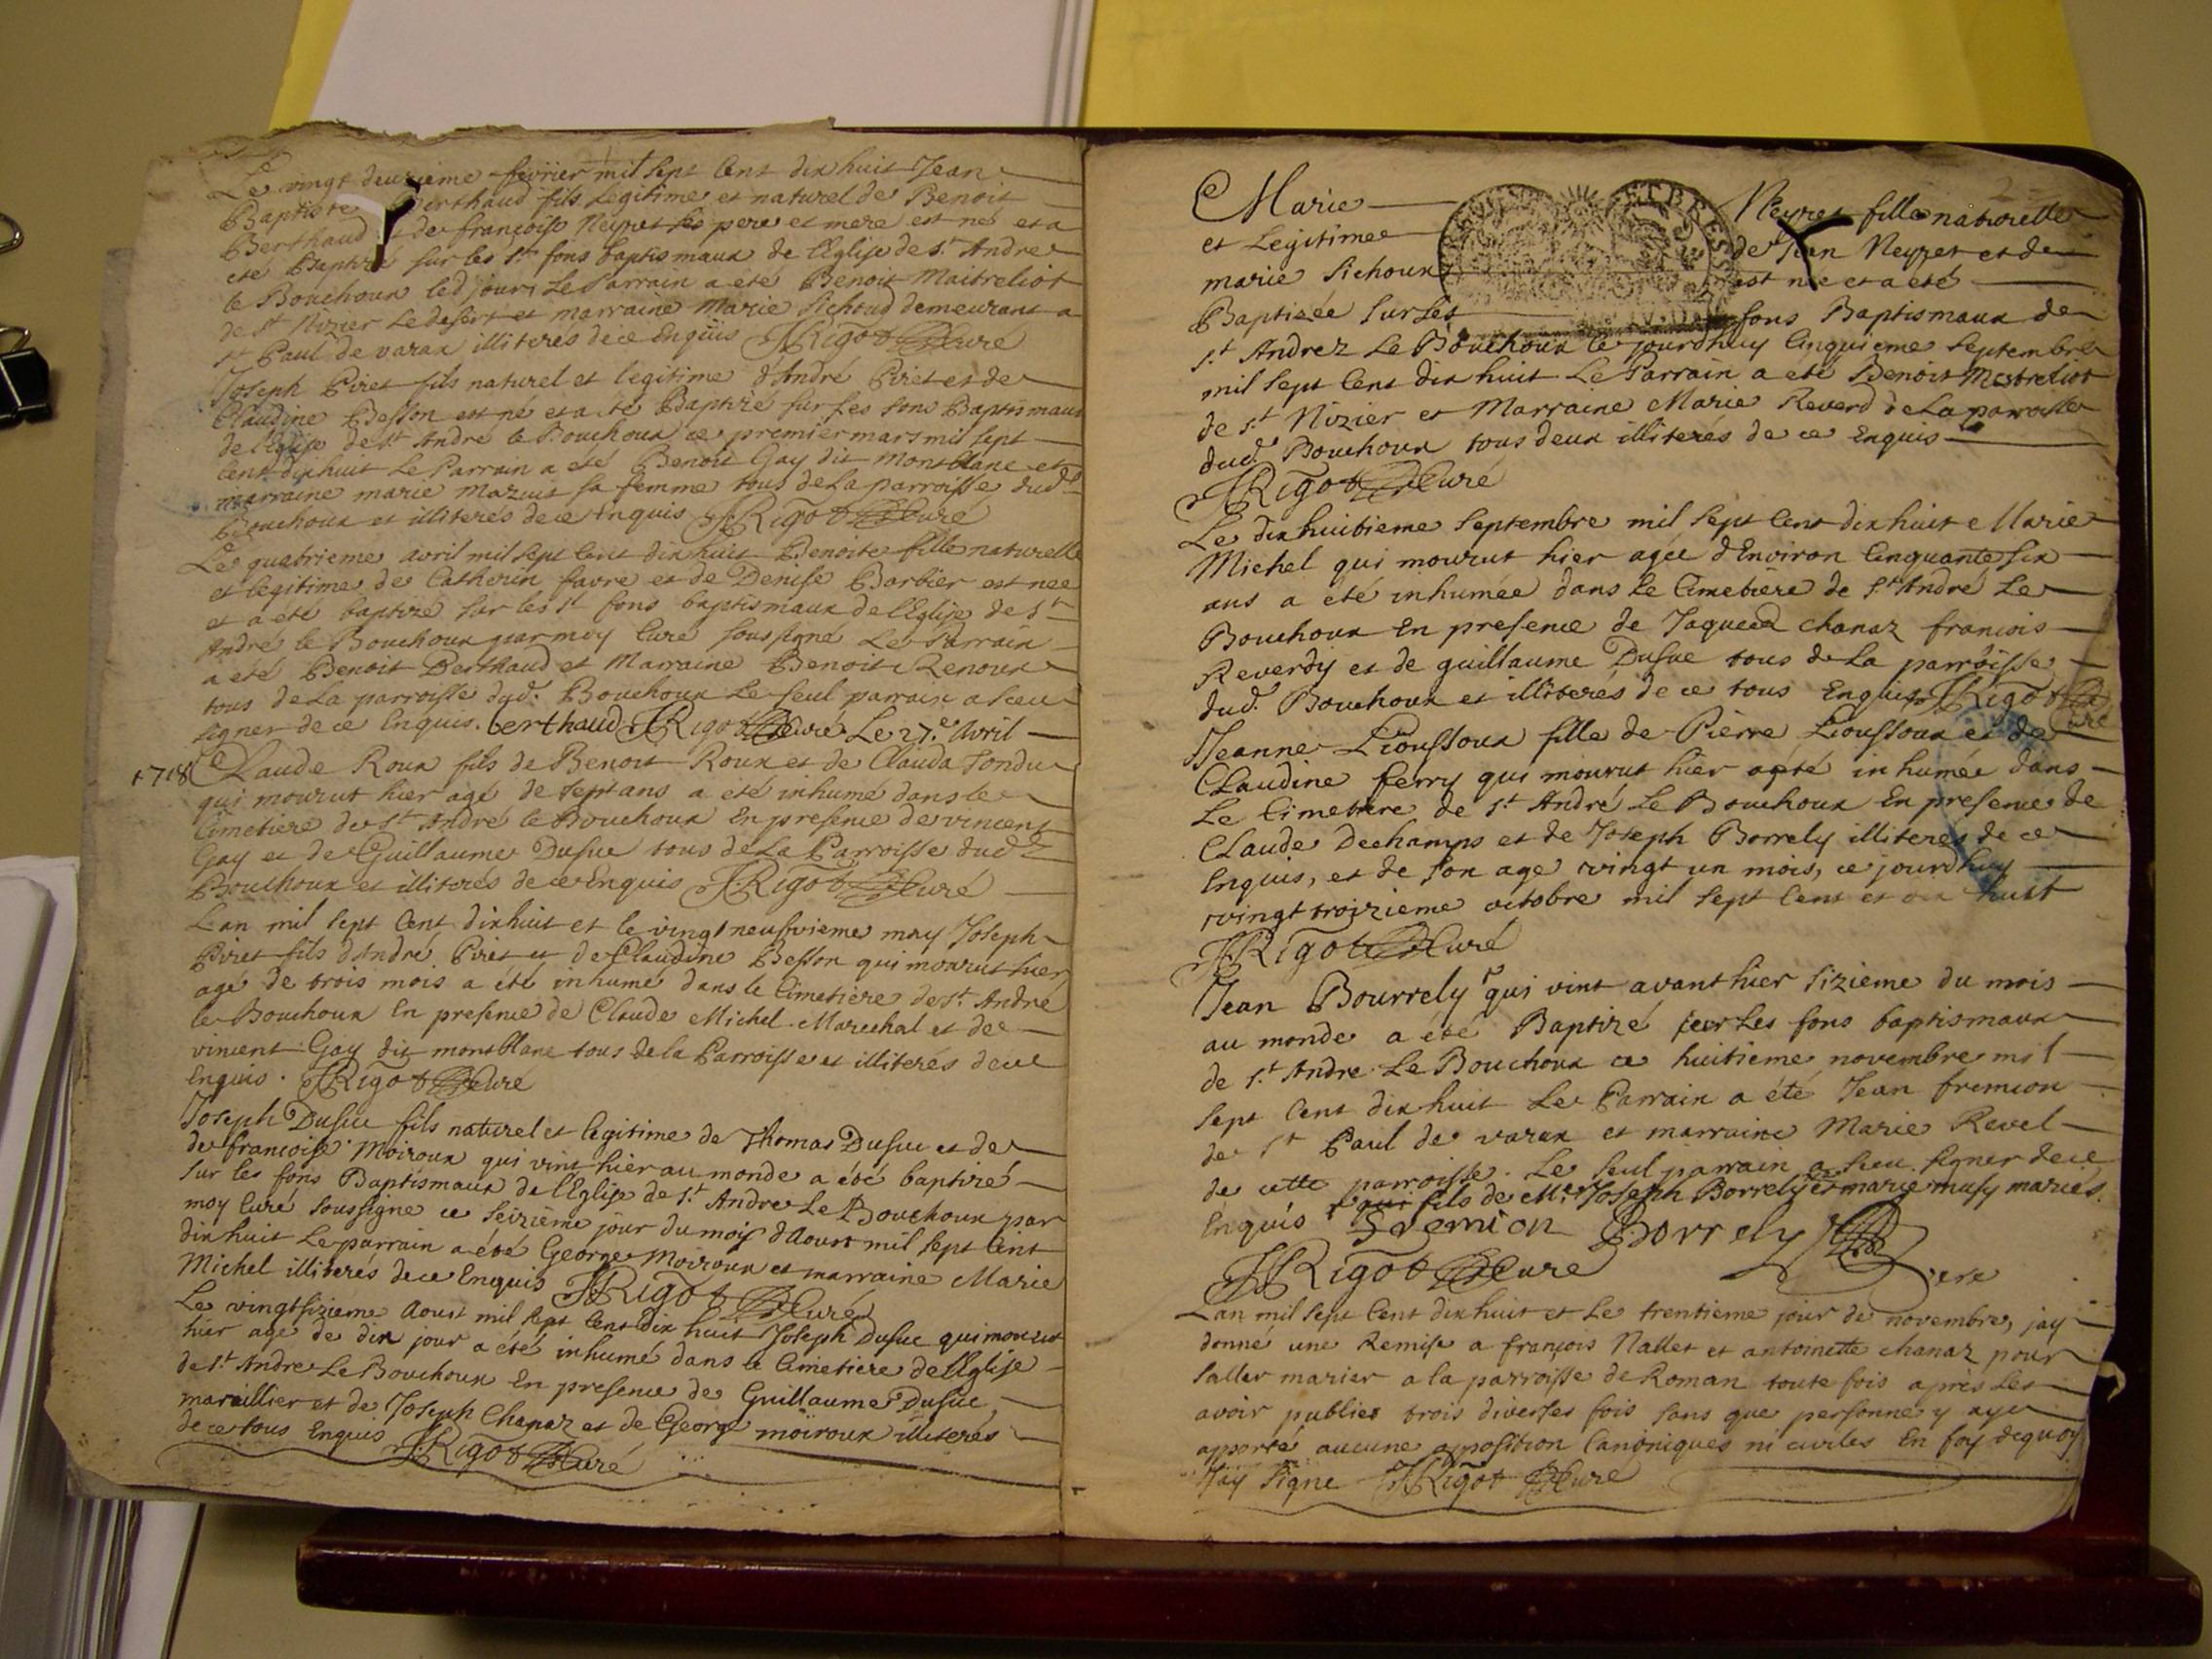 Le vingt deuzieme fevrier mil sept Cent dix huit Jean
Baptiste Berthaud fils Legitime et naturel de Benoit
Berthaud et de françoise Neyret ses pere et mere est né et a
eté Baptizé sur les St fons baptismaux de l'Eglise de St Andre
le Bouchoux led jour Le Parrain a eté Benoit Maitreliot
de St Nizier Le desert et marraine Marie Sichoud demeurant a
St Paul de varax illiterés de ce Enquis JRigot Curé
Joseph Piret fils naturel et legitime d'André Piret et de
Claudine Besson est né et a eté Baptizé sur les fons Baptismaux
de l'Eglise de St André le Bouchoux ce premier mars mil sept
Cent dix huit Le Parrain a eté Benoit Gay dit Montblanc et
marraine marie Mazuit sa femme tous de La parroisse dud
Bouchoux et illiterés de ce Enquis JRigot Curé
Le quatrieme avril mil sept Cent dix huit Benoite fille naturelle
et legitime de Catherin favre et de Denise Barbier est née
et a eté baptizé sur les St fons baptismaux de l'Eglise de St
André le Bouchoux par moy Curé soussigné Le Parrain
a eté Benoit Berthaud et Marraine Benoite Renoux
tous de La parroisse dud. Bouchoux Le seul parrain a sceu
signer de ce Enquis. berthaud JRigot Curé Le 27e Avril
1718 Claude Roux fils de Benoit Roux et de Clauda Tondu
qui mourut hier agé de sept ans a été inhumé dans le
Cimetiere de St André le Bouchoux En presence de vincent
Gay et de Guillaume Dusuc tous de La Parroisse dud
Bouchoux et illiterés de ce Enquis JRigot Curé
L'an mil sept Cent dix huit et le vingt neufvieme may Joseph
Piret fils d'André Piret et de Claudine Besson qui mourut hier
agé de trois mois a été inhumé dans le Cimetiere de St André
le Bouchoux En presence de Claude Michel Marechal et de
vincent Gay dit montblanc tous de la Parroisse et illiterés de ce
Enquis. JRigot Curé
Joseph Dusuc fils naturel et legitime de Thomas Dusuc et de
de françoise Moiroux qui vint hier au monde a été baptizé
sur les fons Baptismaux de l'Eglise de St Andre Le Bouchoux par
moy Curé soussigne ce seizieme jour du mois d'Aoust mil sept Cent
dix huit Le parrain a été George Moiroux et marraine Marie
Michel illiterés de ce Enquis JRigot Curé
Le vingt sizieme Aoust mil sept Cent dix huit Joseph Dusuc qui mourut
hier agé de dix jour a été inhumé dans le Cimetiere de l'Eglise
de St Andre Le Bouchoux En presence de Guillaume Dusuc
maraillier et de Joseph Chanaz et de George moiroux illiterés
de ce tous Enquis JRigot Curé
Marie Neyret fille naturelle
et Legitime de Jean Neyret et de
marie Sichoux est née et a eté
Baptizée sur Les fons Baptismaux de
St Andrez Le Bouchoux ce jourdhuy Cinquieme Septembre
mil sept Cent dix huit Le Parrain a eté Benoit Mestreliot
de St Nizier et Marraine Marie Reverd de La parroisse
dud. Bouchoux tous deux illiterés de ce Enquis
JRigot Curé
Le dix huitieme Septembre mil sept Cent dix huit Marie
Michel qui mourut hier agée d'Environ Cinquante six
ans a été inhumée dans Le Cimetiere de St André Le
Bouchoux En presence de Jaques Chanaz francois
Reverdy et de guillaume Dusuc tous de La parroisse
dud. Bouchoux et illiterés de ce tous Enquis JRigot
Curé
Jeanne Lioussoux fille de Pierre Lioussoux et de
Claudine ferry qui mourut hier a été inhumée dans
Le Cimetiere de St André Le Bouchoux En presence de
Claude Dechamps et de Joseph Borrely illiterés de ce
Enquis, et de son age vingt un mois, ce jourdhuy
vingt troizieme octobre mil sept Cent et dix huit
JRigot Curé
Jean Bourrely qui vint avant hier sizieme du mois
au monde a été Baptizé sur Les fons baptismaux
de St Andre Le Bouchoux ce huitieme novembre mil
sept Cent dix huit Le Parrain a été Jean fremion
de St Paul de varax et marraine Marie Revel
de cette parroisse. Le seul parrain a sceu signer de ce
Enquis fils de Mr Joseph Borrely et marie musy mariés.
Fremion Borrely
JRigot Curé pere
L'an mil sept Cent dix huit et Le trentieme jour de novembre, jay
donné une Remise a françois Nallet et antoinette chanaz pour
saller marier a la parroisse de Roman toute fois après Les
avoir publiés trois diverses fois sans que personne y aye
apporté aucune opposition Canoniques ni civiles En foy dequoy
Jay signe JRigot Curé